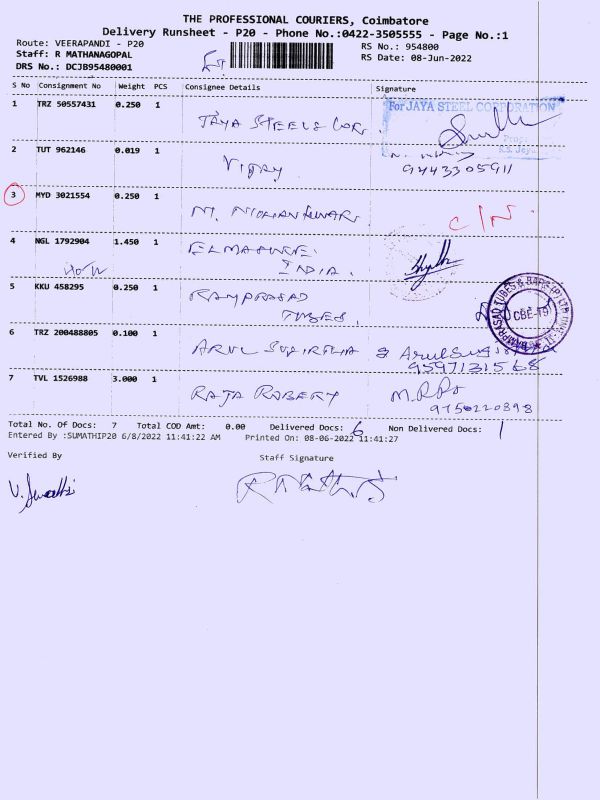 THE PROFESSIONAL COURIERS, Coimbatore
Delivery Runsheet - P20 - Phone No.:0422-3505555 - Page No.:1
Route: VEERAPANDI - P20
RS No.: 954800
Staff: R MATHANAGOPAL
RS Date: 08-Jun-2022
DRS No.: DCJB95480001
S No Consignment No Weight PCS Consignee Details Signature
1 TRZ 50557431 0.250 1
For JAYA STEEL CORPORATION
JAYA STEELS COR.
2 TUT 962146 0.019 1
VIJAY
9443305911
3 MYD 3021554 0.250 1
M. MOHAN KUMAR
C/N.
4 NGL 1792904 1.450 1
INDIA.
5 KKU 458295 0.250 1
RAMPRASAD
TUBES
RAMAPRASAD TUBES & BARS (P) LTD
CBE-19
6 TRZ 200488805 0.100 1
ARUL
9597131568
7 TVL 1526988 3.000 1
RAJA ROBERT
9750220398
Total No. Of Docs: 7 Total COD Amt: 0.00 Delivered Docs: 6 Non Delivered Docs: 1
Entered By :SUMATHIP20 6/8/2022 11:41:22 AM Printed On: 08-06-2022 11:41:27
Verified By Staff Signature